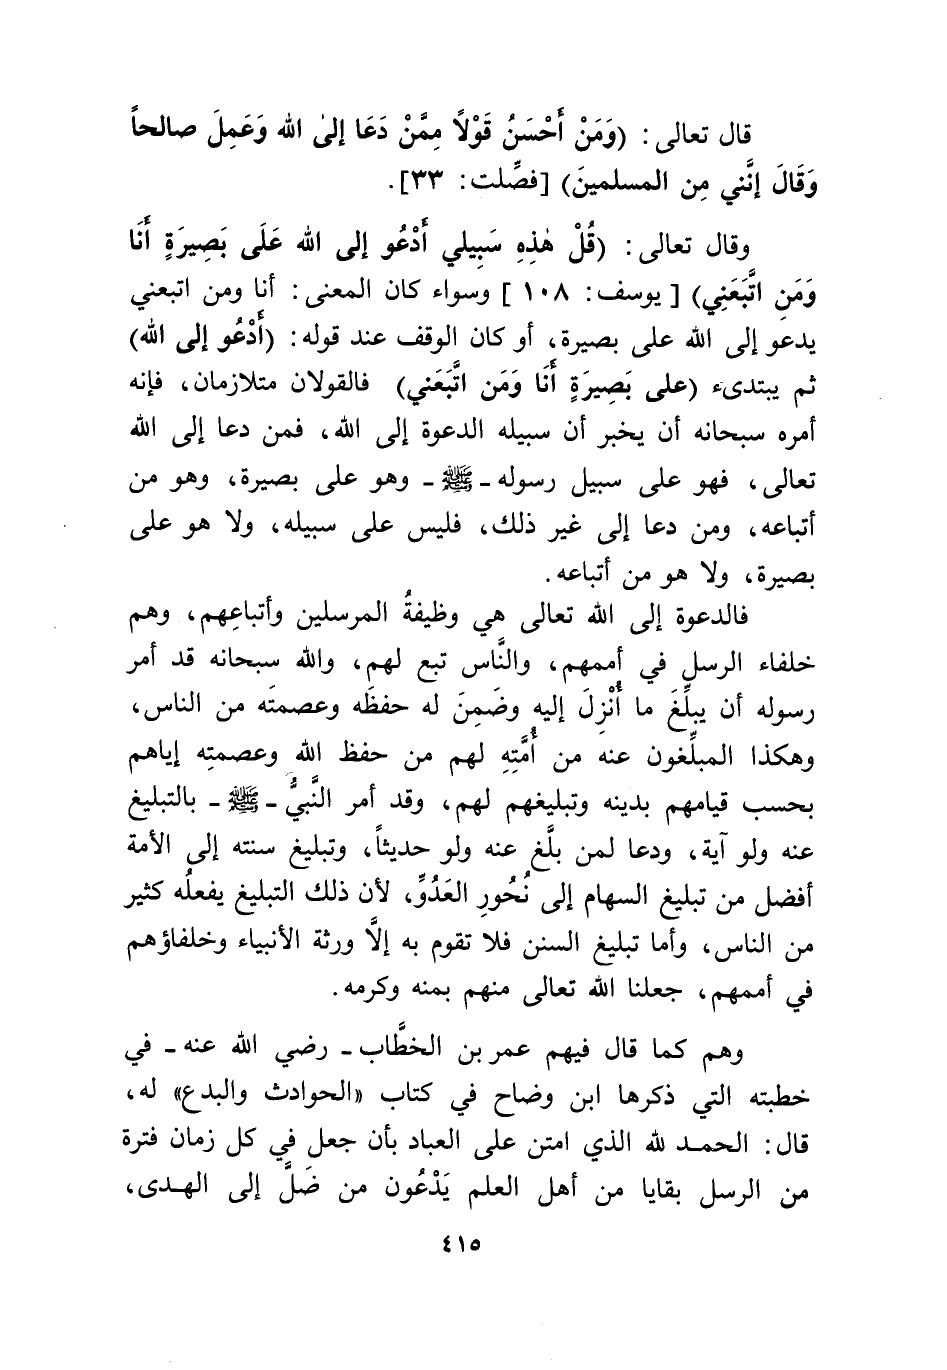 قال تعالى : (وَمَنْ أَحْسَنُ قَوْلًا مِمَّنْ دَعَا إلىٰ الله وَعَمِلَ صالحاً
وَقَالَ إنَّني مِن المسلمينَ) [فصِّلت: ٣٣].
وقال تعالى : (قُلْ هٰذِهِ سَبِيلي أَدْعُو إلى الله عَلَى بَصِيرَةٍ أَنَا
وَمَنِ اتَّبَعَنِي) [ يوسف: ١٠٨ ] وسواء كان المعنى : أنا ومن اتبعني
يدعو إلى الله على بصيرة، أو كان الوقف عند قوله : (أَدْعُو إلى الله)
ثم يبتدىء (على بَصِيرَةٍ أَنَا وَمَن اتَّبَعَني) فالقولان متلازمان، فإنه
أمره سبحانه أن يخبر أن سبيله الدعوة إلى الله، فمن دعا إلى الله
تعالى، فهو على سبيل رسوله - ﷺ - وهو على بصيرة، وهو من
أتباعه، ومن دعا إلى غير ذلك، فليس على سبيله، ولا هو على
بصيرة، ولا هو من أتباعه.
فالدعوة إلى الله تعالى هي وظيفةُ المرسلين وأتباعِهم، وهم
خلفاء الرسل في أممهم، والنَّاس تبع لهم، والله سبحانه قد أمر
رسوله أن يبلِّغَ ما أُنْزِلَ إليه وضَمِنَ له حفظَه وعصمتَه من الناس،
وهكذا المبلِّغون عنه من أُمَّتِهِ لهم من حفظ الله وعصمتِه إياهم
بحسب قيامهم بدينه وتبليغهم لهم، وقد أمر النَّبيُّ - ﷺ - بالتبليغ
عنه ولو آية، ودعا لمن بلَّغ عنه ولو حديثاً، وتبليغ سنته إلى الأمة
أفضل من تبليغ السهام إلى نُحُورِ العَدُوِّ، لأن ذلك التبليغ يفعلُه كثير
من الناس، وأما تبليغ السنن فلا تقوم به إلَّا ورثة الأنبياء وخلفاؤهم
في أممهم، جعلنا الله تعالى منهم بمنه وكرمه.
وهم كما قال فيهم عمر بن الخطَّاب - رضي الله عنه - في
خطبته التي ذكرها ابن وضاح في كتاب «الحوادث والبدع» له،
قال : الحمد لله الذي امتن على العباد بأن جعل في كل زمان فترة
من الرسل بقايا من أهل العلم يَدْعُون من ضَلَّ إلى الهدى،
٤١٥